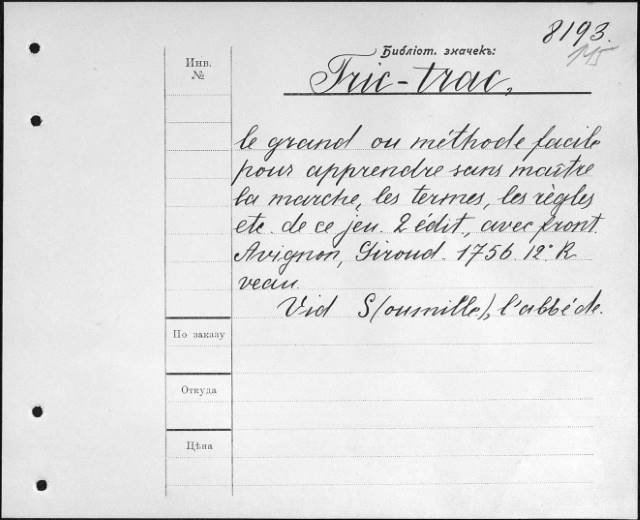 8193.
115
Библіот. значекъ:
Инв.
№
Tric-trac,
le grand ou méthode facile
pour apprendre sans maître
la marche, les termes, les règles
etc. de ce jeu. 2 édit, avec front.
Avignon, Giroud. 1756. 12°. R
veau.
Vid S(oumille), l'abbé de.
По заказу
Откуда
Цѣна